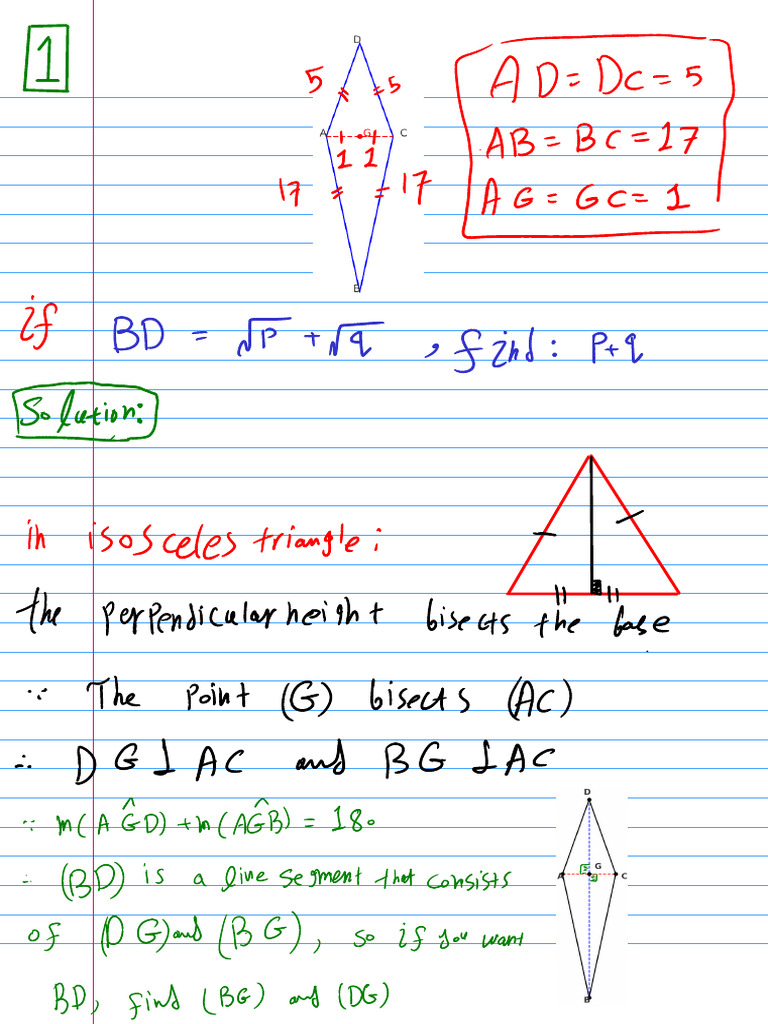 1
D
5 5
A G C
1 1
17 17
B
AD = DC = 5
AB = BC = 17
AG = GC = 1
if BD = √p + √q , find: p+q
Solution:
in isosceles triangle:
the perpendicular height bisects the base
∵ The point (G) bisects (AC)
∴ DG⊥AC and BG⊥AC
∵ m(AĜD)+m(AĜB) = 180
∴ (BD) is a line segment that consists
of (DG) and (BG), so if you want
BD, find (BG) and (DG)
D
A G C
B